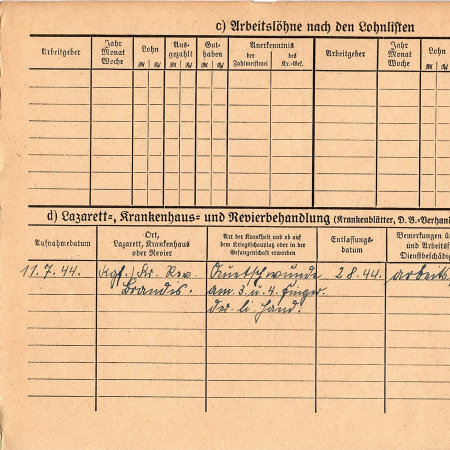 c) Arbeitslöhne nach den Lohnlisten
Arbeitgeber
Jahr
Monat
Woche
Lohn
Aus-
gezahlt
Gut-
haben
Anerkenntnis
der
Zahlmeisterei
des
Kr.-Gef.
Arbeitgeber
Jahr
Monat
Woche
Lohn
d) Lazarett-, Krankenhaus- und Revierbehandlung (Krankenblätter, D. B.-Verhan
Aufnahmedatum
Ort,
Lazarett, Krankenhaus
oder Revier
Art der Krankheit und ob auf
dem Kriegsschauplatz oder in der
Gefangenschaft erworben
Entlassungs-
datum
Bemerkungen ü
und Arbeitsf
Dienstbeschädig
11.7.44.
Kgf. Kr. Rev.
Brandis.
Quetschwunde
am 3. u. 4. Finger
der li. Hand.
2.8.44.
arbeits